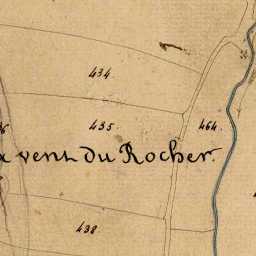 434.
435
464.
vent Du Rocher.
438